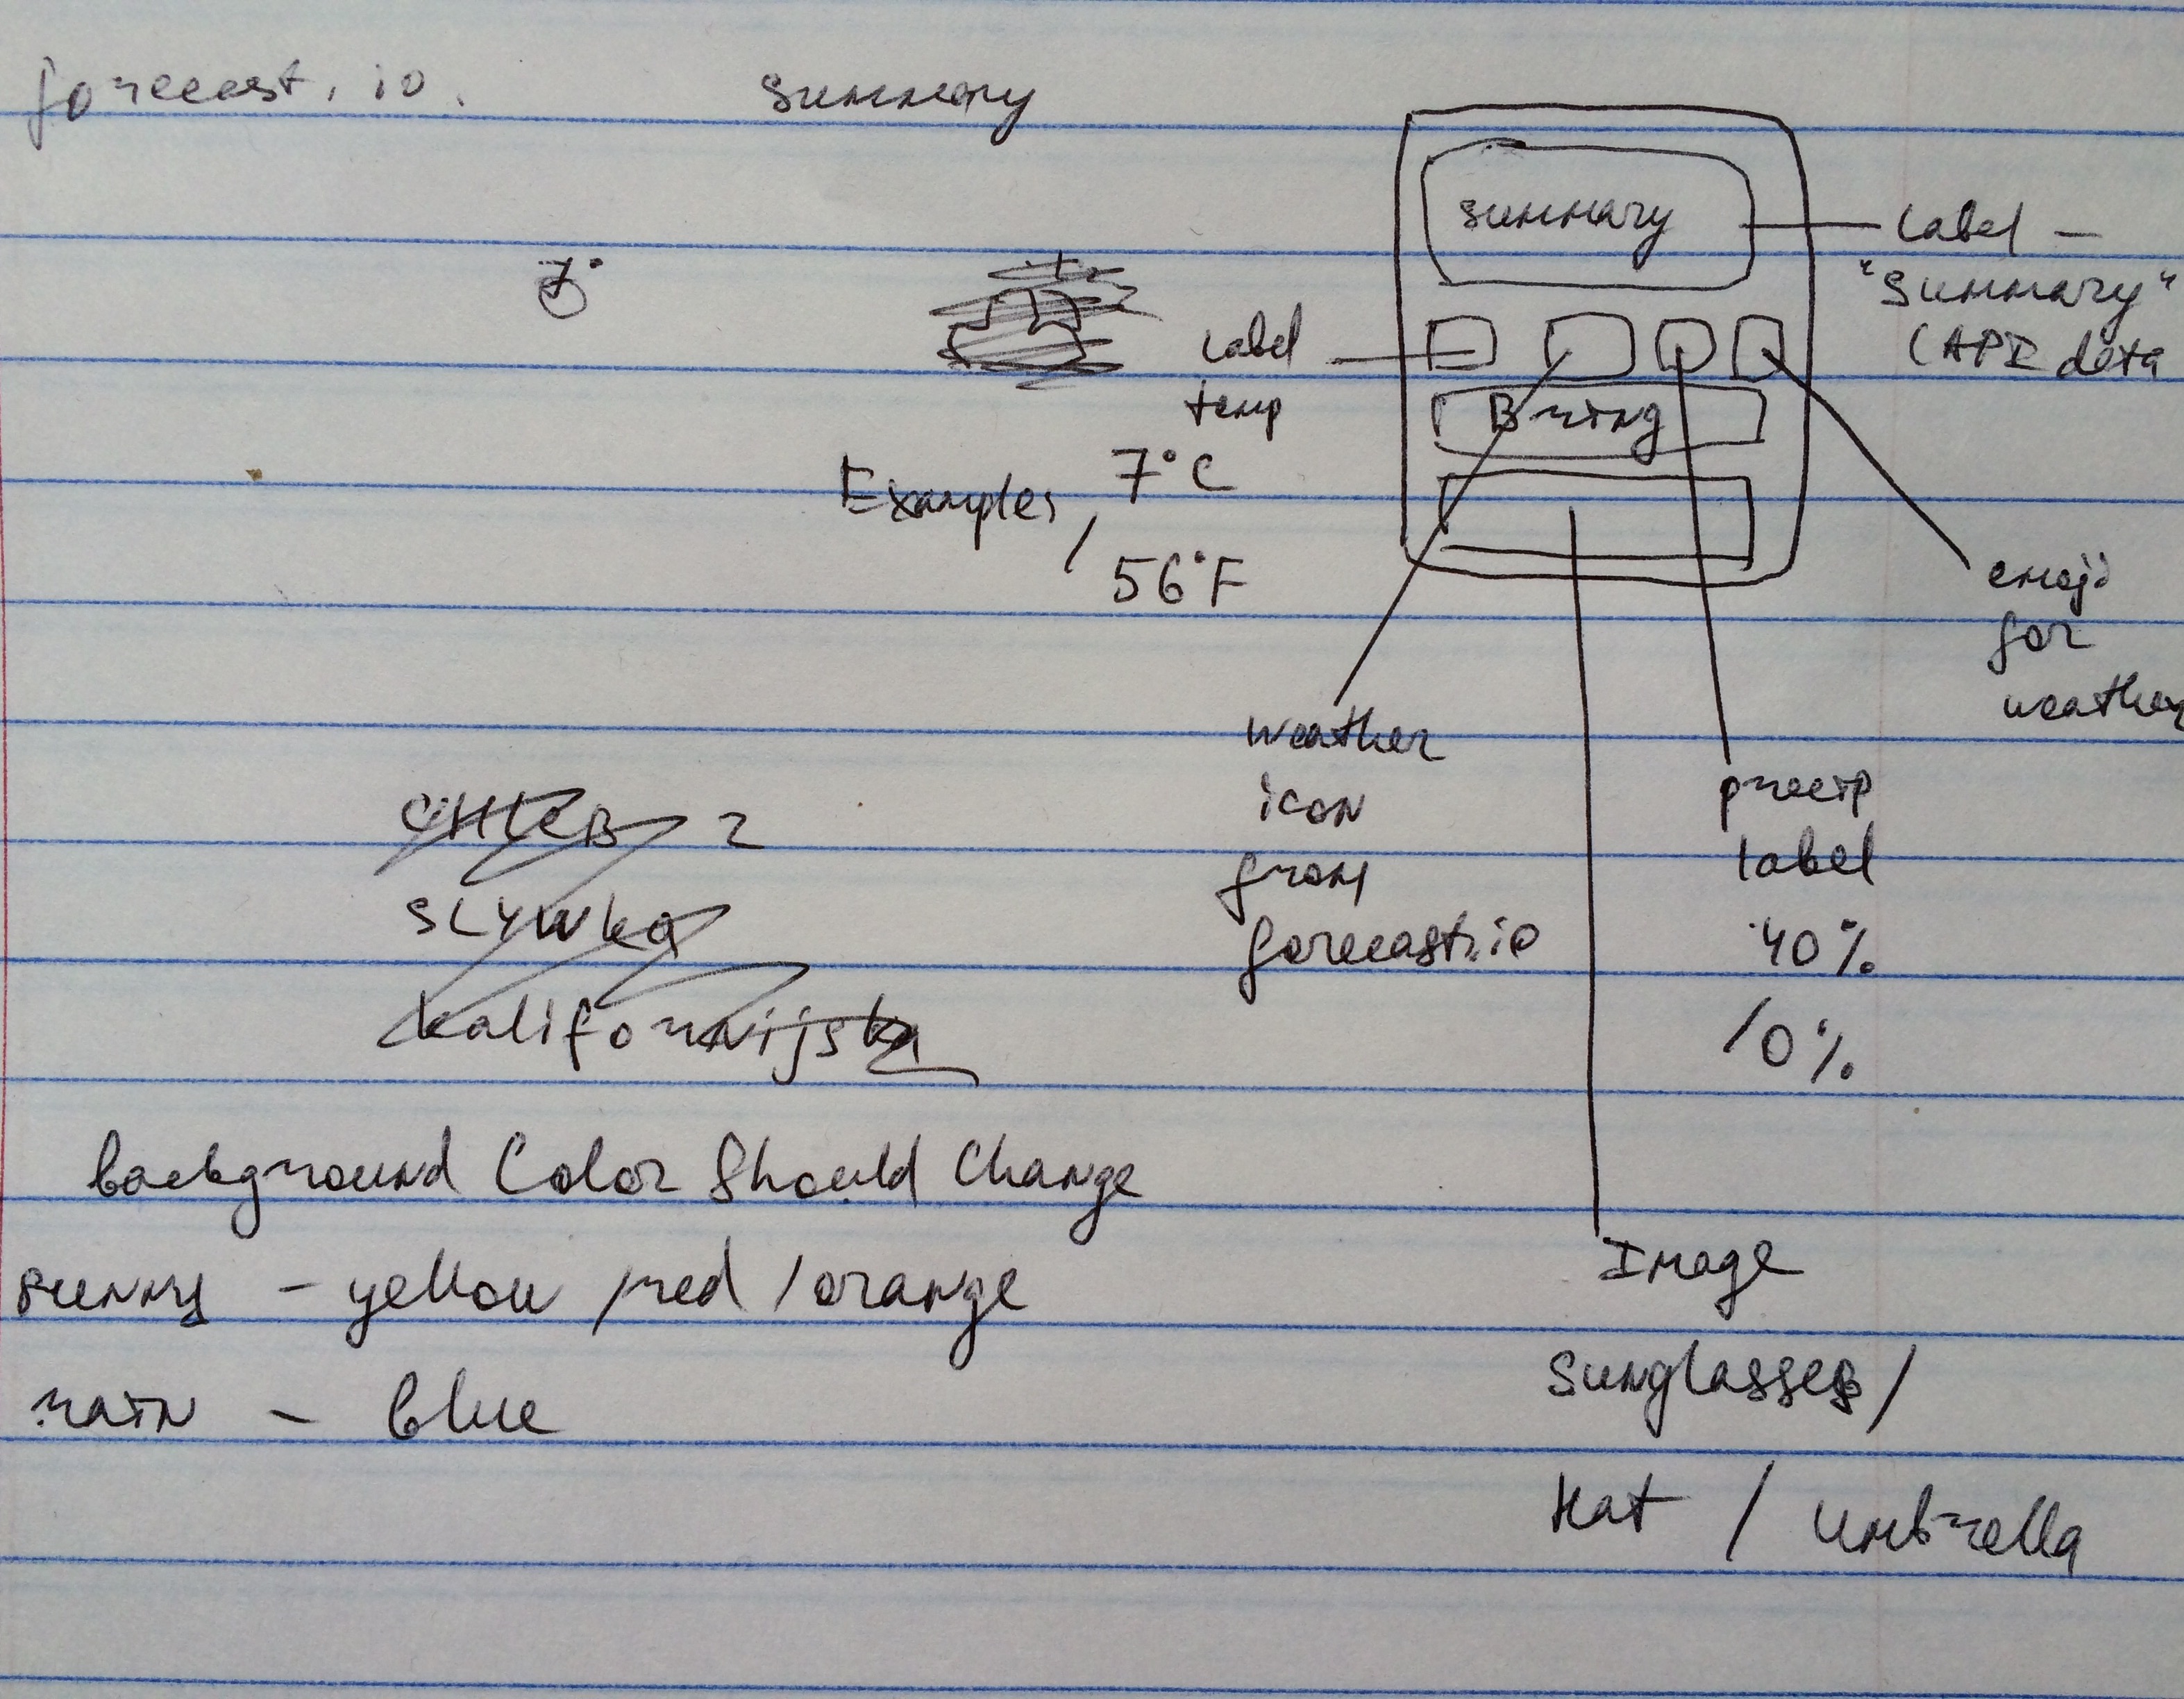 forecast.io.
summary
7°
summary
Label —
"Summary"
(API data
Label
temp
Bring
Examples
7°C
/
56°F
emoji
for
weather
weather
icon
from
forecast.io
precip
label
40%
/0%
CHLEB 2
SLYWKA
kalifornijska
background Color Should Change
sunny - yellow / red / orange
rain - blue
Image
Sunglasses /
Hat / umbrella